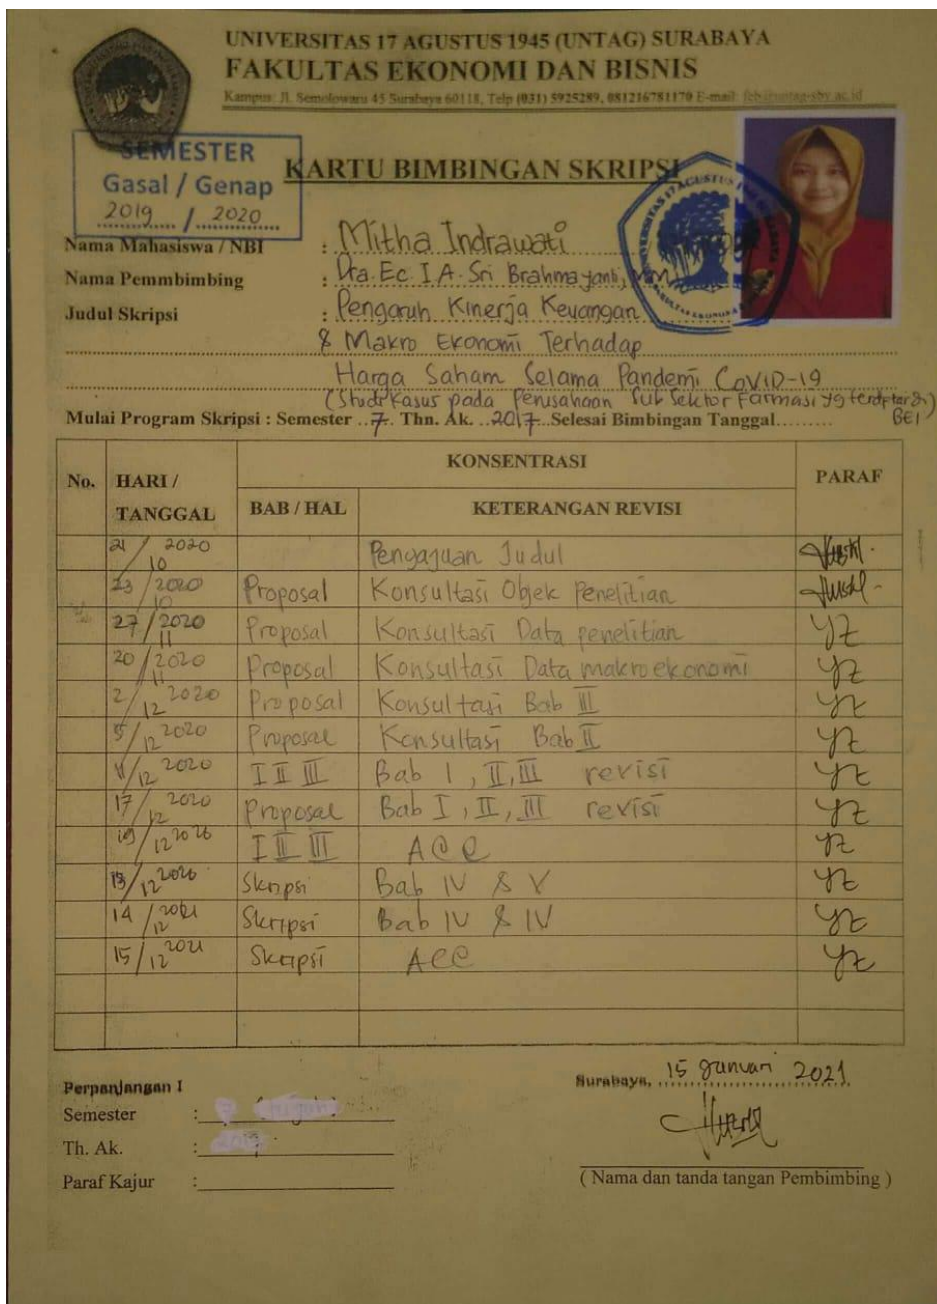 UNIVERSITAS 17 AGUSTUS 1945 (UNTAG) SURABAYA
FAKULTAS EKONOMI DAN BISNIS
Kampus: Jl. Semolowaru 45 Surabaya 60118, Telp (031) 5925289, 081216781170 E-mail: feb@untag-sby.ac.id
SEMESTER
Gasal / Genap
2019 / 2020
KARTU BIMBINGAN SKRIPSI
Nama Mahasiswa / NBI : Mitha Indrawati
Nama Pemmbimbing : Dra. Ec. I.A. Sri Brahmayanti, MM
Judul Skripsi : Pengaruh Kinerja Keuangan
& Makro Ekonomi Terhadap
Harga Saham Selama Pandemi CoviD-19
(Studi Kasus pada Perusahaan Sub Sektor Farmasi yg terdaftar di BEI)
Mulai Program Skripsi : Semester ..7.. Thn. Ak. ..2017..Selesai Bimbingan Tanggal.........
No. HARI / TANGGAL KONSENTRASI PARAF
BAB / HAL KETERANGAN REVISI
21/10 2020 Pengajuan Judul
23/10 2020 Proposal Konsultasi Objek Penelitian
27/11 2020 Proposal Konsultasi Data penelitian
20/11 2020 Proposal Konsultasi Data makroekonomi
2/12 2020 Proposal Konsultasi Bab II
5/12 2020 Proposal Konsultasi Bab II
/12 2020 I II III Bab I, II, III revisi
17/12 2020 Proposal Bab I, II, III revisi
19/12 2020 I II III ACC
/12 2020 Skripsi Bab IV & V
14/12 2021 Skripsi Bab IV & IV
15/12 2021 Skripsi ACC
Perpanjangan I
Semester : 7
Th. Ak. : 2017
Paraf Kajur :
Surabaya, 15 Januari 2021
( Nama dan tanda tangan Pembimbing )